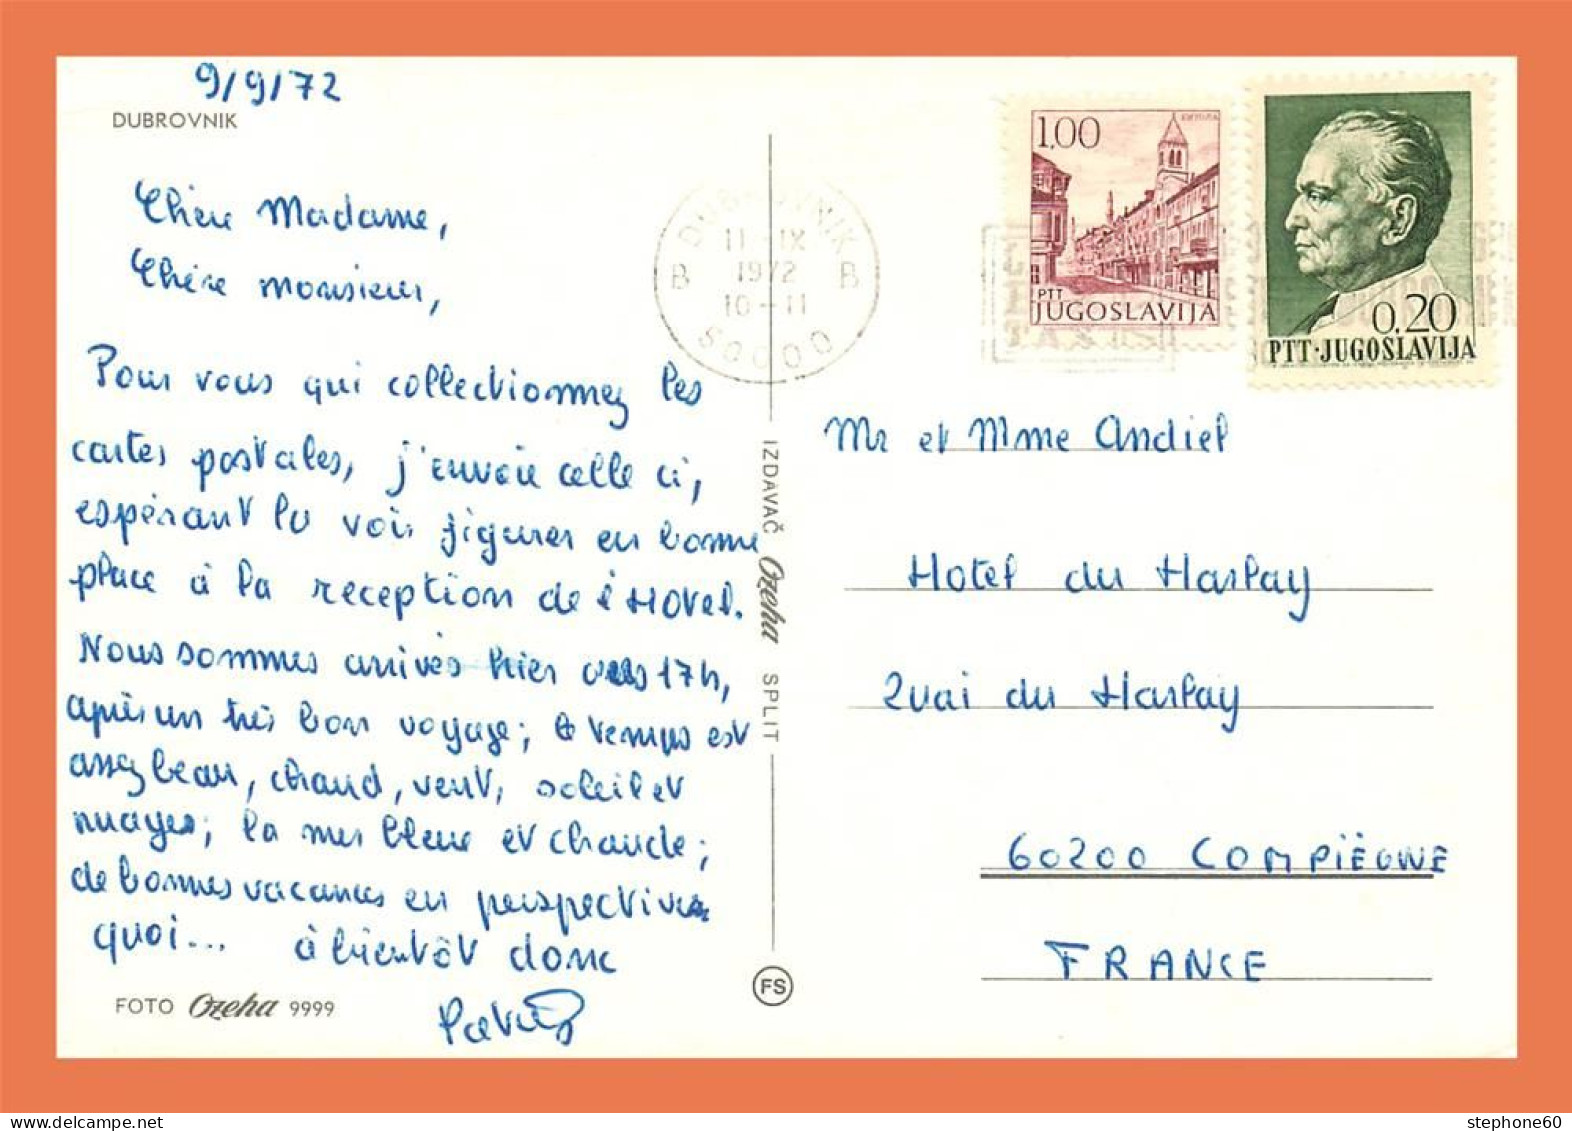 9/9/72
DUBROVNIK
Chère Madame,
Chère monsieur,
Pour vous qui collectionnez les
cartes postales, j'envoie celle ci,
espérant la voir figurer en bonne
place à la reception de l'Hotel.
Nous sommes arrivés hier vers 17h,
après un très bon voyage; le temps est
assez beau, chaud, vent, soleil et
nuages; la mer bleue et chaude;
de bonnes vacances en perspectives
quoi... à bientôt donc
FOTO Ozeha 9999
IZDAVAČ Ozeha SPLIT
FS
DUBROVNIK
11-IX
1972
10-11
B B
50000
1,00
PTT
JUGOSLAVIJA
0,20
PTT·JUGOSLAVIJA
Mr et Mme Andiel
Hotel du Harlay
Quai du Harlay
60200 COMPIÈGNE
FRANCE
stephone60